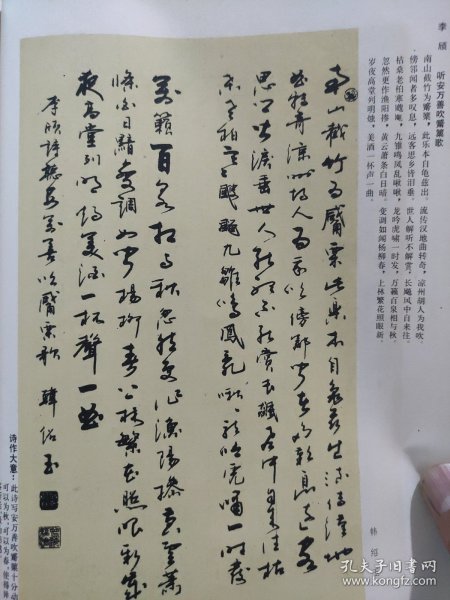 李颀
听安万善吹觱篥歌
南山截竹为觱篥，此乐本自龟兹出。流传汉地曲转奇，凉州胡人为我吹。
傍邻闻者多叹息，远客思乡皆泪垂。世人解听不解赏，长飚风中自来往。
枯桑老柏寒飕飗，九雏鸣凤乱啾啾。龙吟虎啸一时发，万籁百泉相与秋。
忽然更作渔阳掺，黄云萧条白日暗。变调如闻杨柳春，上林繁花照眼新。
岁夜高堂列明烛，美酒一杯声一曲。
南山截竹为觱篥此乐本自龟兹出流传汉地
曲转奇凉州胡人为我吹傍邻闻者多叹息远客
思乡皆泪垂世人解听不解赏长飚风中自来往枯
桑老柏寒飕飗九雏鸣凤乱啾啾龙吟虎啸一时发
万籁百泉相与秋忽然更作渔阳掺黄云萧
条白日黯变调如闻杨柳春上林繁花照眼新岁
夜高堂列明烛美酒一杯声一曲
李颀诗听安万善吹觱篥歌 韩绍玉
韩绍
诗作大意：此诗写安万善吹觱篥十分动
可以为秋，可以为春，使
孔夫子旧书网